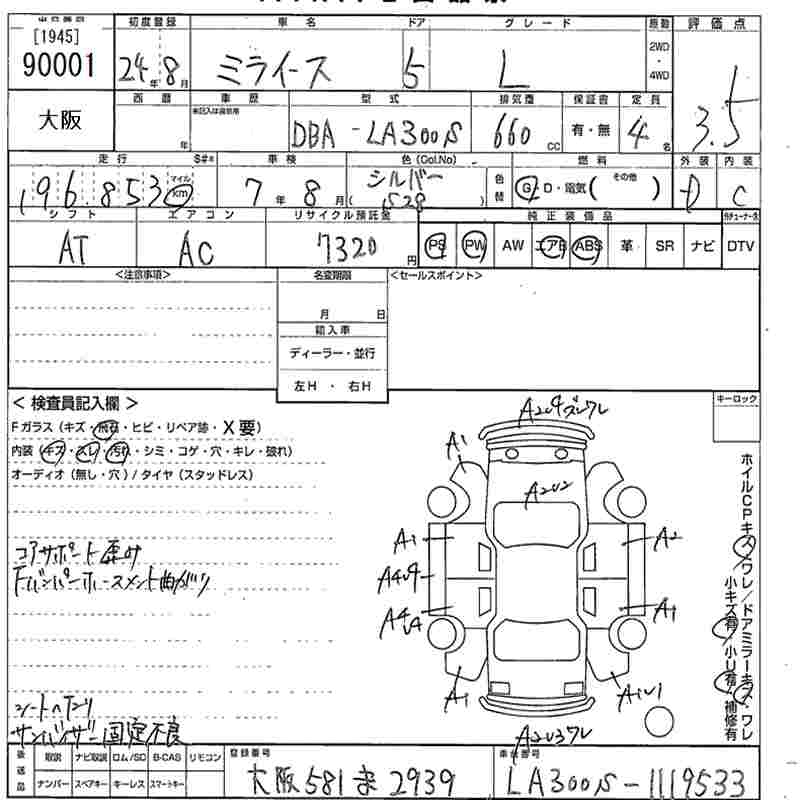 [1945]
90001
初度登録 車名 ドア グレード 原動 評価点
24年8月 ミライース 5 L 2WD・4WD 3.5
大阪
西暦 車歴 型式 排気量 保証書 定員
年 DBA-LA300S 660cc 有・無 4名
走行 S#* 車検 色(Col.No) 燃料 外装 内装
196.853 マイル km 7年8月 シルバー S28 色替 G・D・電気( その他 ) D C
シフト エアコン リサイクル預託金 純正装備品
AT AC 7320円 PS PW AW エアB ABS 革 SR ナビ DTV
<注意事項> 名変期限 <セールスポイント>
月 日
輸入車
ディーラー・並行
左H・右H
< 検査員記入欄 > キーロック
Fガラス(キズ・飛石・ヒビ・リペア跡・X要)
内装(キズ・スレ・汚れ・シミ・コゲ・穴・キレ・破れ)
オーディオ(無し・穴)/タイヤ(スタッドレス)
コアサポート歪み
Fバンパーホースメント曲がり
シートヘタリ
サンバイザー固定不良
A2U4ズレワレ
A1
A2U2
A1 A2
A4U4
A4U4 A1
A1 A1U1
A2U3ワレ
ホイルCPキズ/ワレ/ドアミラーキズ・ワレ
小キズ有/小U有/補修有
後送品 取説 ナビ取説 ロム/SD B-CAS リモコン 登録番号 車台番号
ナンバー スペアキー キーレス スマートキー 大阪 581 ま 2939 LA300S-1119533